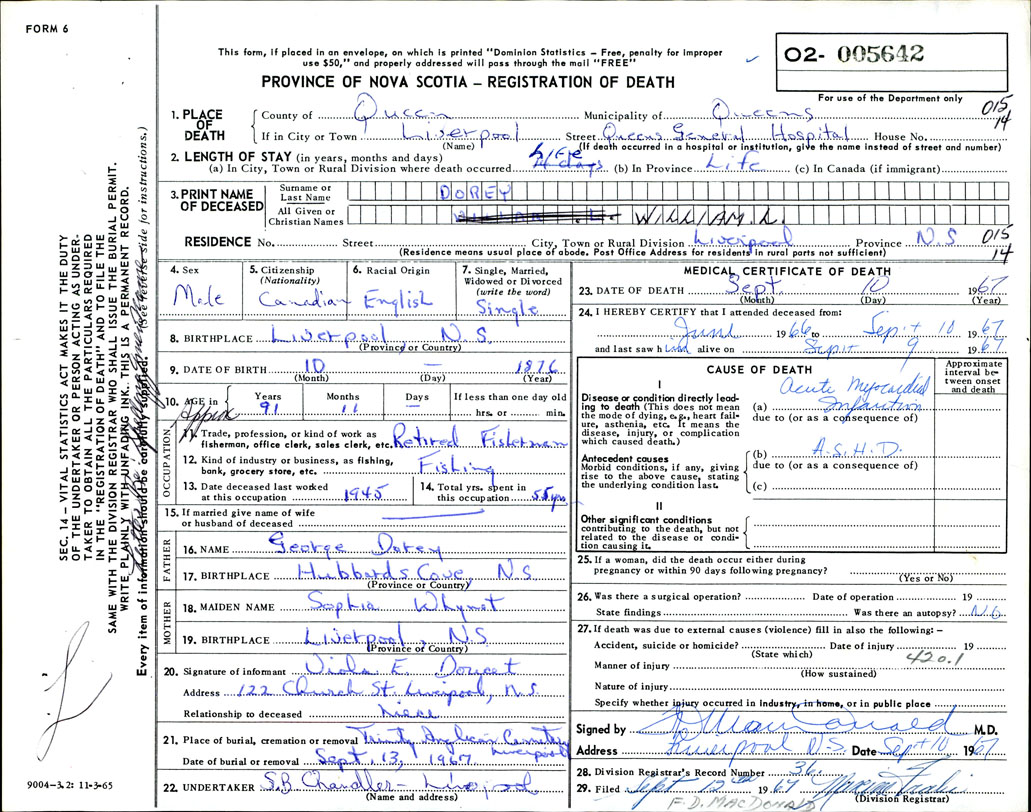 FORM 6
This form, if placed in an envelope, on which is printed "Dominion Statistics – Free, penalty for improper
use $50," and properly addressed will pass through the mail "FREE"
PROVINCE OF NOVA SCOTIA – REGISTRATION OF DEATH
02- 005642
For use of the Department only
015
14
1. PLACE OF DEATH
County of Queen Municipality of Queens
If in City or Town Liverpool Street Queens General Hospital House No.
(Name) (If death occurred in a hospital or institution, give the name instead of street and number)
2. LENGTH OF STAY (in years, months and days)
(a) In City, Town or Rural Division where death occurred Life days (b) In Province Life (c) In Canada (if immigrant)
3. PRINT NAME OF DECEASED
Surname or Last Name DOREY
All Given or Christian Names WILLIAM. L.
RESIDENCE No. Street City, Town or Rural Division Liverpool Province N.S 015
14
(Residence means usual place of abode. Post Office Address for residents in rural parts not sufficient)
4. Sex
Male
5. Citizenship
(Nationality)
Canadian
6. Racial Origin
English
7. Single, Married,
Widowed or Divorced
(write the word)
Single
8. BIRTHPLACE Liverpool N.S.
(Province or Country)
9. DATE OF BIRTH 10 — 1876
(Month) (Day) (Year)
10. AGE in Approx
Years Months Days If less than one day old
91 11 – hrs. or min.
OCCUPATION
11. Trade, profession, or kind of work as
fisherman, office clerk, sales clerk, etc. Retired Fisherman
12. Kind of industry or business, as fishing,
bank, grocery store, etc. Fishing
13. Date deceased last worked
at this occupation 1945
14. Total yrs. spent in
this occupation 55 yrs
15. If married give name of wife
or husband of deceased
FATHER
16. NAME George Dorey
17. BIRTHPLACE Hubbards Cove N.S.
(Province or Country)
MOTHER
18. MAIDEN NAME Sophia Whynot
19. BIRTHPLACE Liverpool, N.S.
(Province or Country)
20. Signature of informant Viola E Doucet
Address 122 Church St. Liverpool, N.S.
Relationship to deceased Niece
21. Place of burial, cremation or removal Trinity Anglican Cemetery
Liverpool
Date of burial or removal Sept. 13, 1967
22. UNDERTAKER S.B. Chandler – Liverpool
(Name and address)
MEDICAL CERTIFICATE OF DEATH
23. DATE OF DEATH Sept 10 1967
(Month) (Day) (Year)
24. I HEREBY CERTIFY that I attended deceased from:
June 1966 to Sept 10 1967
and last saw him alive on Sept 9 1967
CAUSE OF DEATH
Approximate
interval be-
tween onset
and death
I
Disease or condition directly lead-
ing to death (This does not mean
the mode of dying, e.g., heart fail-
ure, asthenia, etc. It means the
disease, injury, or complication
which caused death.)
Acute Myocardial
(a) Infarction
due to (or as a consequence of)
Antecedent causes
Morbid conditions, if any, giving
rise to the above cause, stating
the underlying condition last.
(b) A.S.H.D.
due to (or as a consequence of)
(c)
II
Other significant conditions
contributing to the death, but not
related to the disease or condi-
tion causing it.
25. If a woman, did the death occur either during
pregnancy or within 90 days following pregnancy?
(Yes or No)
26. Was there a surgical operation? Date of operation 19
State findings Was there an autopsy? No
27. If death was due to external causes (violence) fill in also the following: –
Accident, suicide or homicide? Date of injury 19
(State which) 420.1
Manner of injury
(How sustained)
Nature of injury
Specify whether injury occurred in industry, in home, or in public place
Signed by M.D.
Address Liverpool N.S. Date Sept 10 1967
28. Division Registrar's Record Number 36
29. Filed Sept 12th 1967
(Division Registrar)
F. D. MACDONALD
SEC. 14 – VITAL STATISTICS ACT MAKES IT THE DUTY
OF THE UNDERTAKER OR PERSON ACTING AS UNDER-
TAKER TO OBTAIN ALL THE PARTICULARS REQUIRED
IN THE "REGISTRATION OF DEATH" AND TO FILE THE
SAME WITH THE DIVISION REGISTRAR WHO SHALL ISSUE THE BURIAL PERMIT.
WRITE PLAINLY WITH UNFADING INK. THIS IS A PERMANENT RECORD.
Every item of information should be carefully supplied. (See reverse side for instructions.)
9004-3.2: 11-3-65